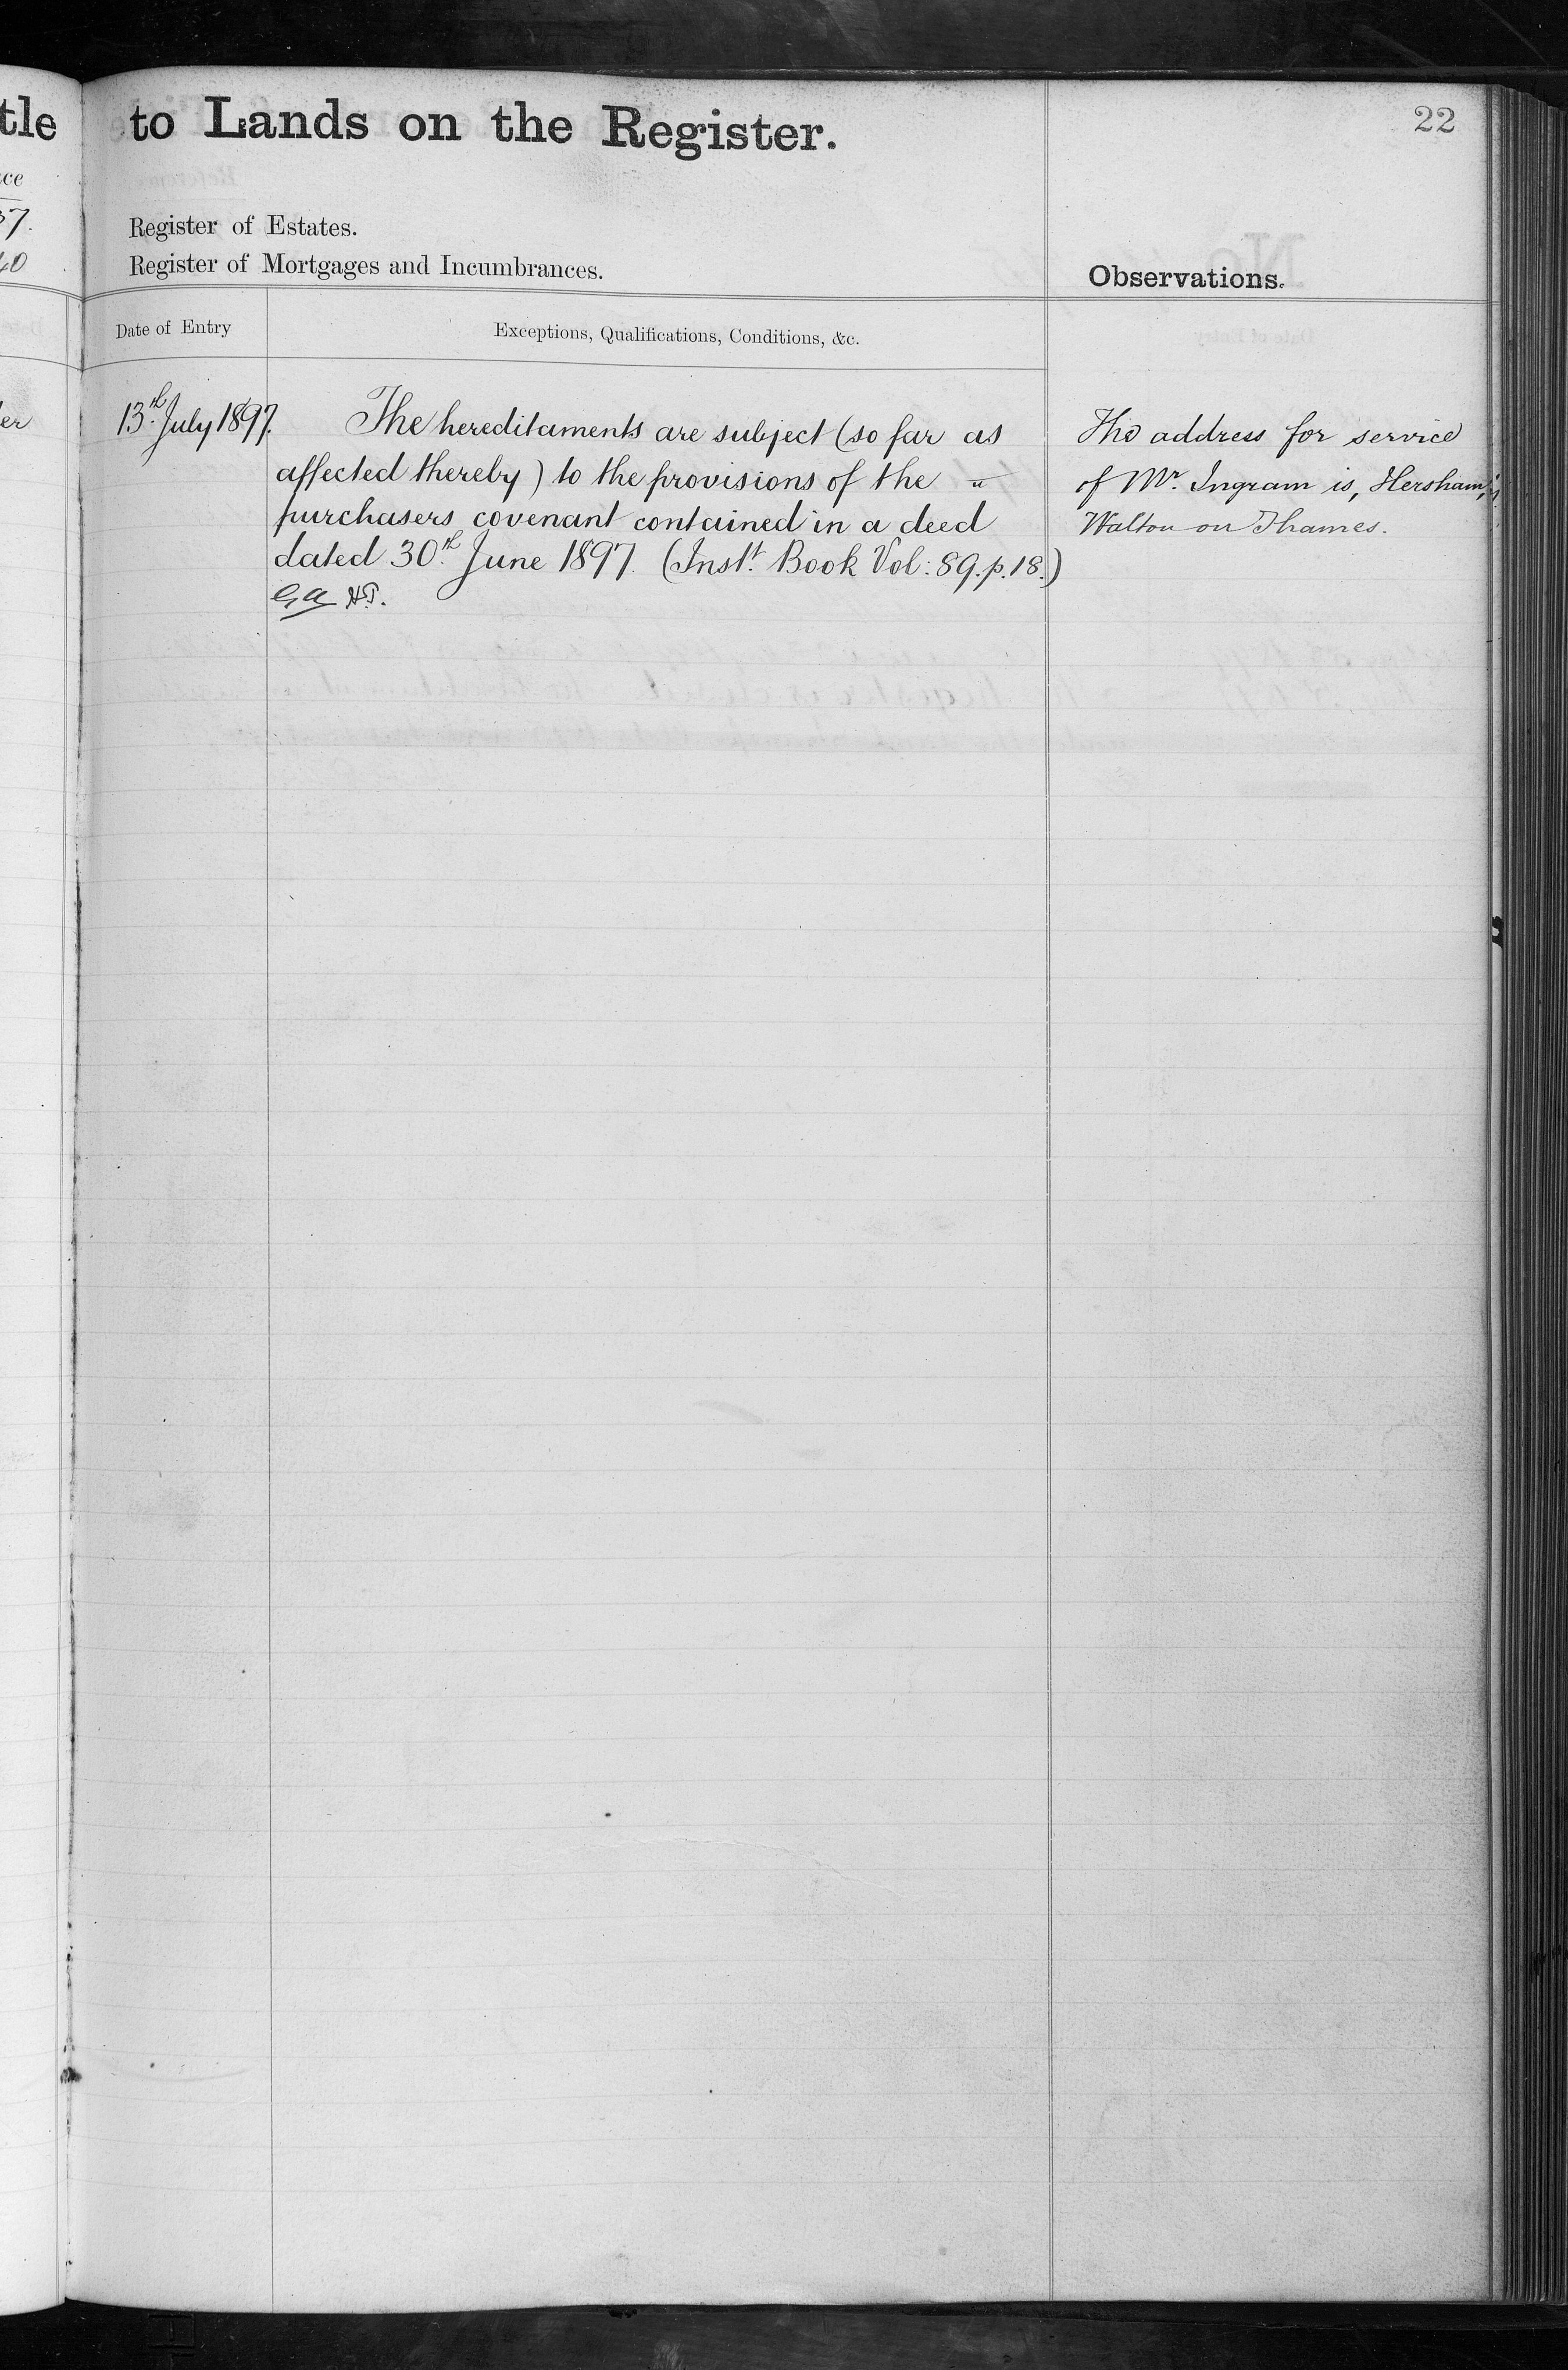 tle to Lands on the Register.
22
ce
37.
40
Register of Estates.
Register of Mortgages and Incumbrances.
Observations.
Date of Entry
Exceptions, Qualifications, Conditions, &c.
er
13th July 1897.
The hereditaments are subject (so far as
affected thereby) to the provisions of the
purchasers covenant contained in a deed
dated 30th June 1897. (Instt. Book Vol: 89. p. 18.)
The address for service
of Mr. Ingram is, Hersham,
Walton on Thames.